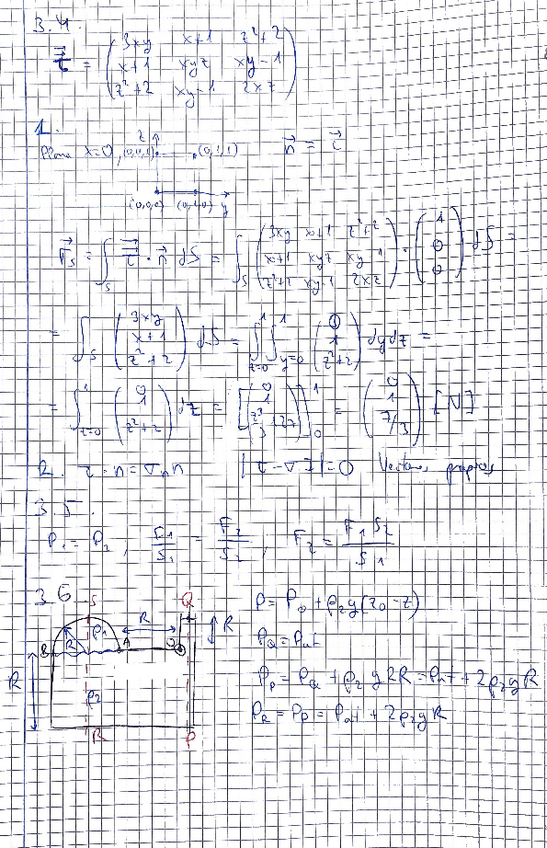 3.4.
τ = ( 3xy x+1 z²+2
x+1 xyz xy-1
z²+2 xy-1 2xz )
1.
Plano x=0, (0,0,1) (0,1,1) n = i
z
(0,0,0) (0,1,0) y
F_S = ∫_S τ · n dS = ∫_S ( 3xy x+1 z²+2
x+1 xyz xy-1
z²+2 xy-1 2xz ) · ( 1
0
0 ) dS =
= ∫_S ( 3xy
x+1
z²+2 ) dS = ∫_{z=0}^{1} ∫_{y=0}^{1} ( 0
1
z²+2 ) dy dz =
= ∫_{z=0}^{1} ( 0
1
z²+2 ) dz = [ ( 0
1
z³/3 + 2z ) ]_0^1 = ( 0
1
7/3 ) [N]
2. τ · n = σ_n n |τ - σ I| = 0 Vectores propios
3.5.
P_1 = P_2, F_1/S_1 = F_2/S_2, F_2 = F_1 S_2 / S_1
3.6
S Q
R
R
ρ_1
B R A
R
ρ_2
R P
P = P_0 + ρ_2 g (z_0 - z)
P_Q = P_at
P_P = P_Q + ρ_2 g 2R = P_at + 2ρ_2 g R
P_R = P_P = P_at + 2ρ_2 g R